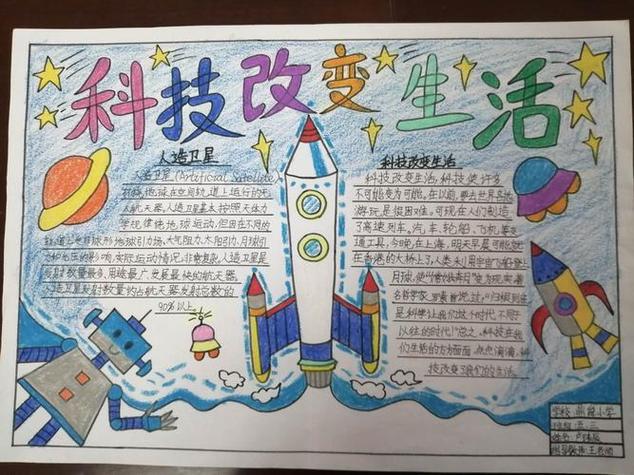 科技改变生活
人造卫星
人造卫星(Artificial Satellite)
环绕地球在空间轨道上运行的无
人航天器。人造卫星基本按照天体力
学规律绕地球运动,但因在不同的
轨道上受非球形地球引力场、大气阻力、太阳引力、月球引
力和光压的影响,实际运动情况非常复杂。人造卫星是
发射数量最多、用途最广、发展最快的航天器。
人造卫星发射数量约占航天器发射总数的
90%以上。
科技改变生活
科技改变生活,科技使许多
不可能变为可能。在以前,要去世界各地
游玩是很困难,可现在人们制造
了高速列车、汽车、轮船、飞机等交
通工具,今晚在上海,明天早晨可能就
在香港的大桥上了,人类利用宇宙飞船登上
月球,使"嫦娥奔月"变为现实。著
名哲学家
是科学让我们这个时代不同于
以往的时代!"总之,科技在我
们生活的方方面面,点点滴滴,科
技改变了我们的生活。
学校:小学
班级:五.三
姓名:卢
指导教师:王